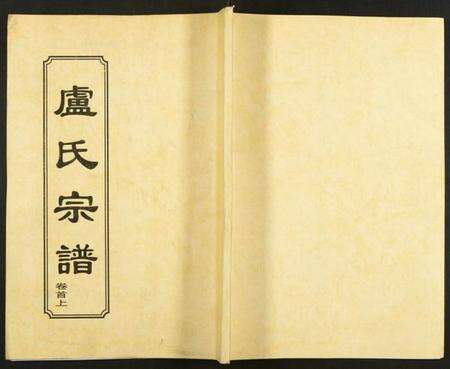 盧氏宗譜
卷首上